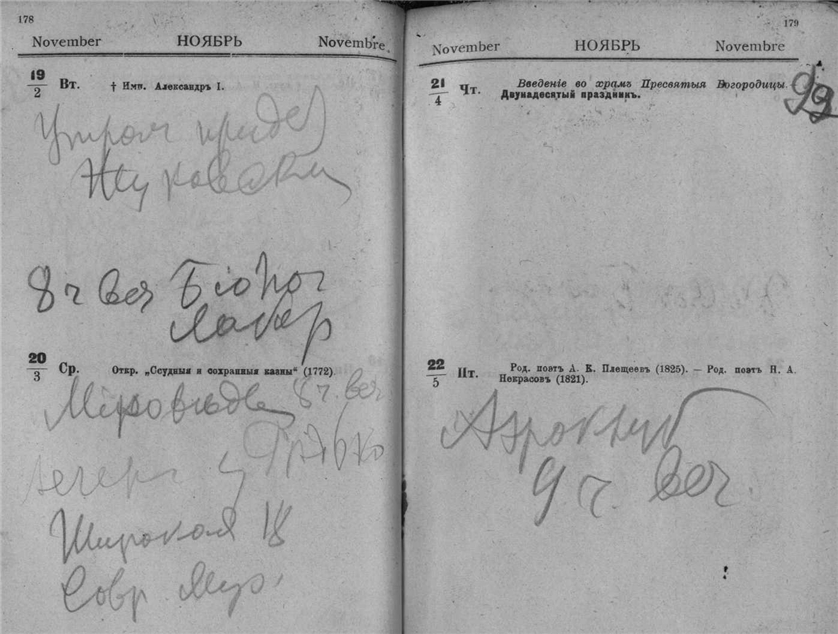 178
November НОЯБРЬ Novembre.
19/2 Вт. † Имп. Александръ I.
Утром придет
Жуковский
8 ч веч Біолог
Лабор
20/3 Ср. Откр. „Ссудныя и сохранныя казны“ (1772).
Міровѣд 8 ч. веч
вечер у
Широкая 18
Совр Мир.
179
November НОЯБРЬ Novembre
21/4 Чт. Введеніе во храмъ Пресвятыя Богородицы.
Двунадесятый праздникъ.
99
22/5 Пт. Род. поэтъ А. К. Плещеевъ (1825). — Род. поэтъ Н. А.
Некрасовъ (1821).
Аэроклуб
9 ч. веч.